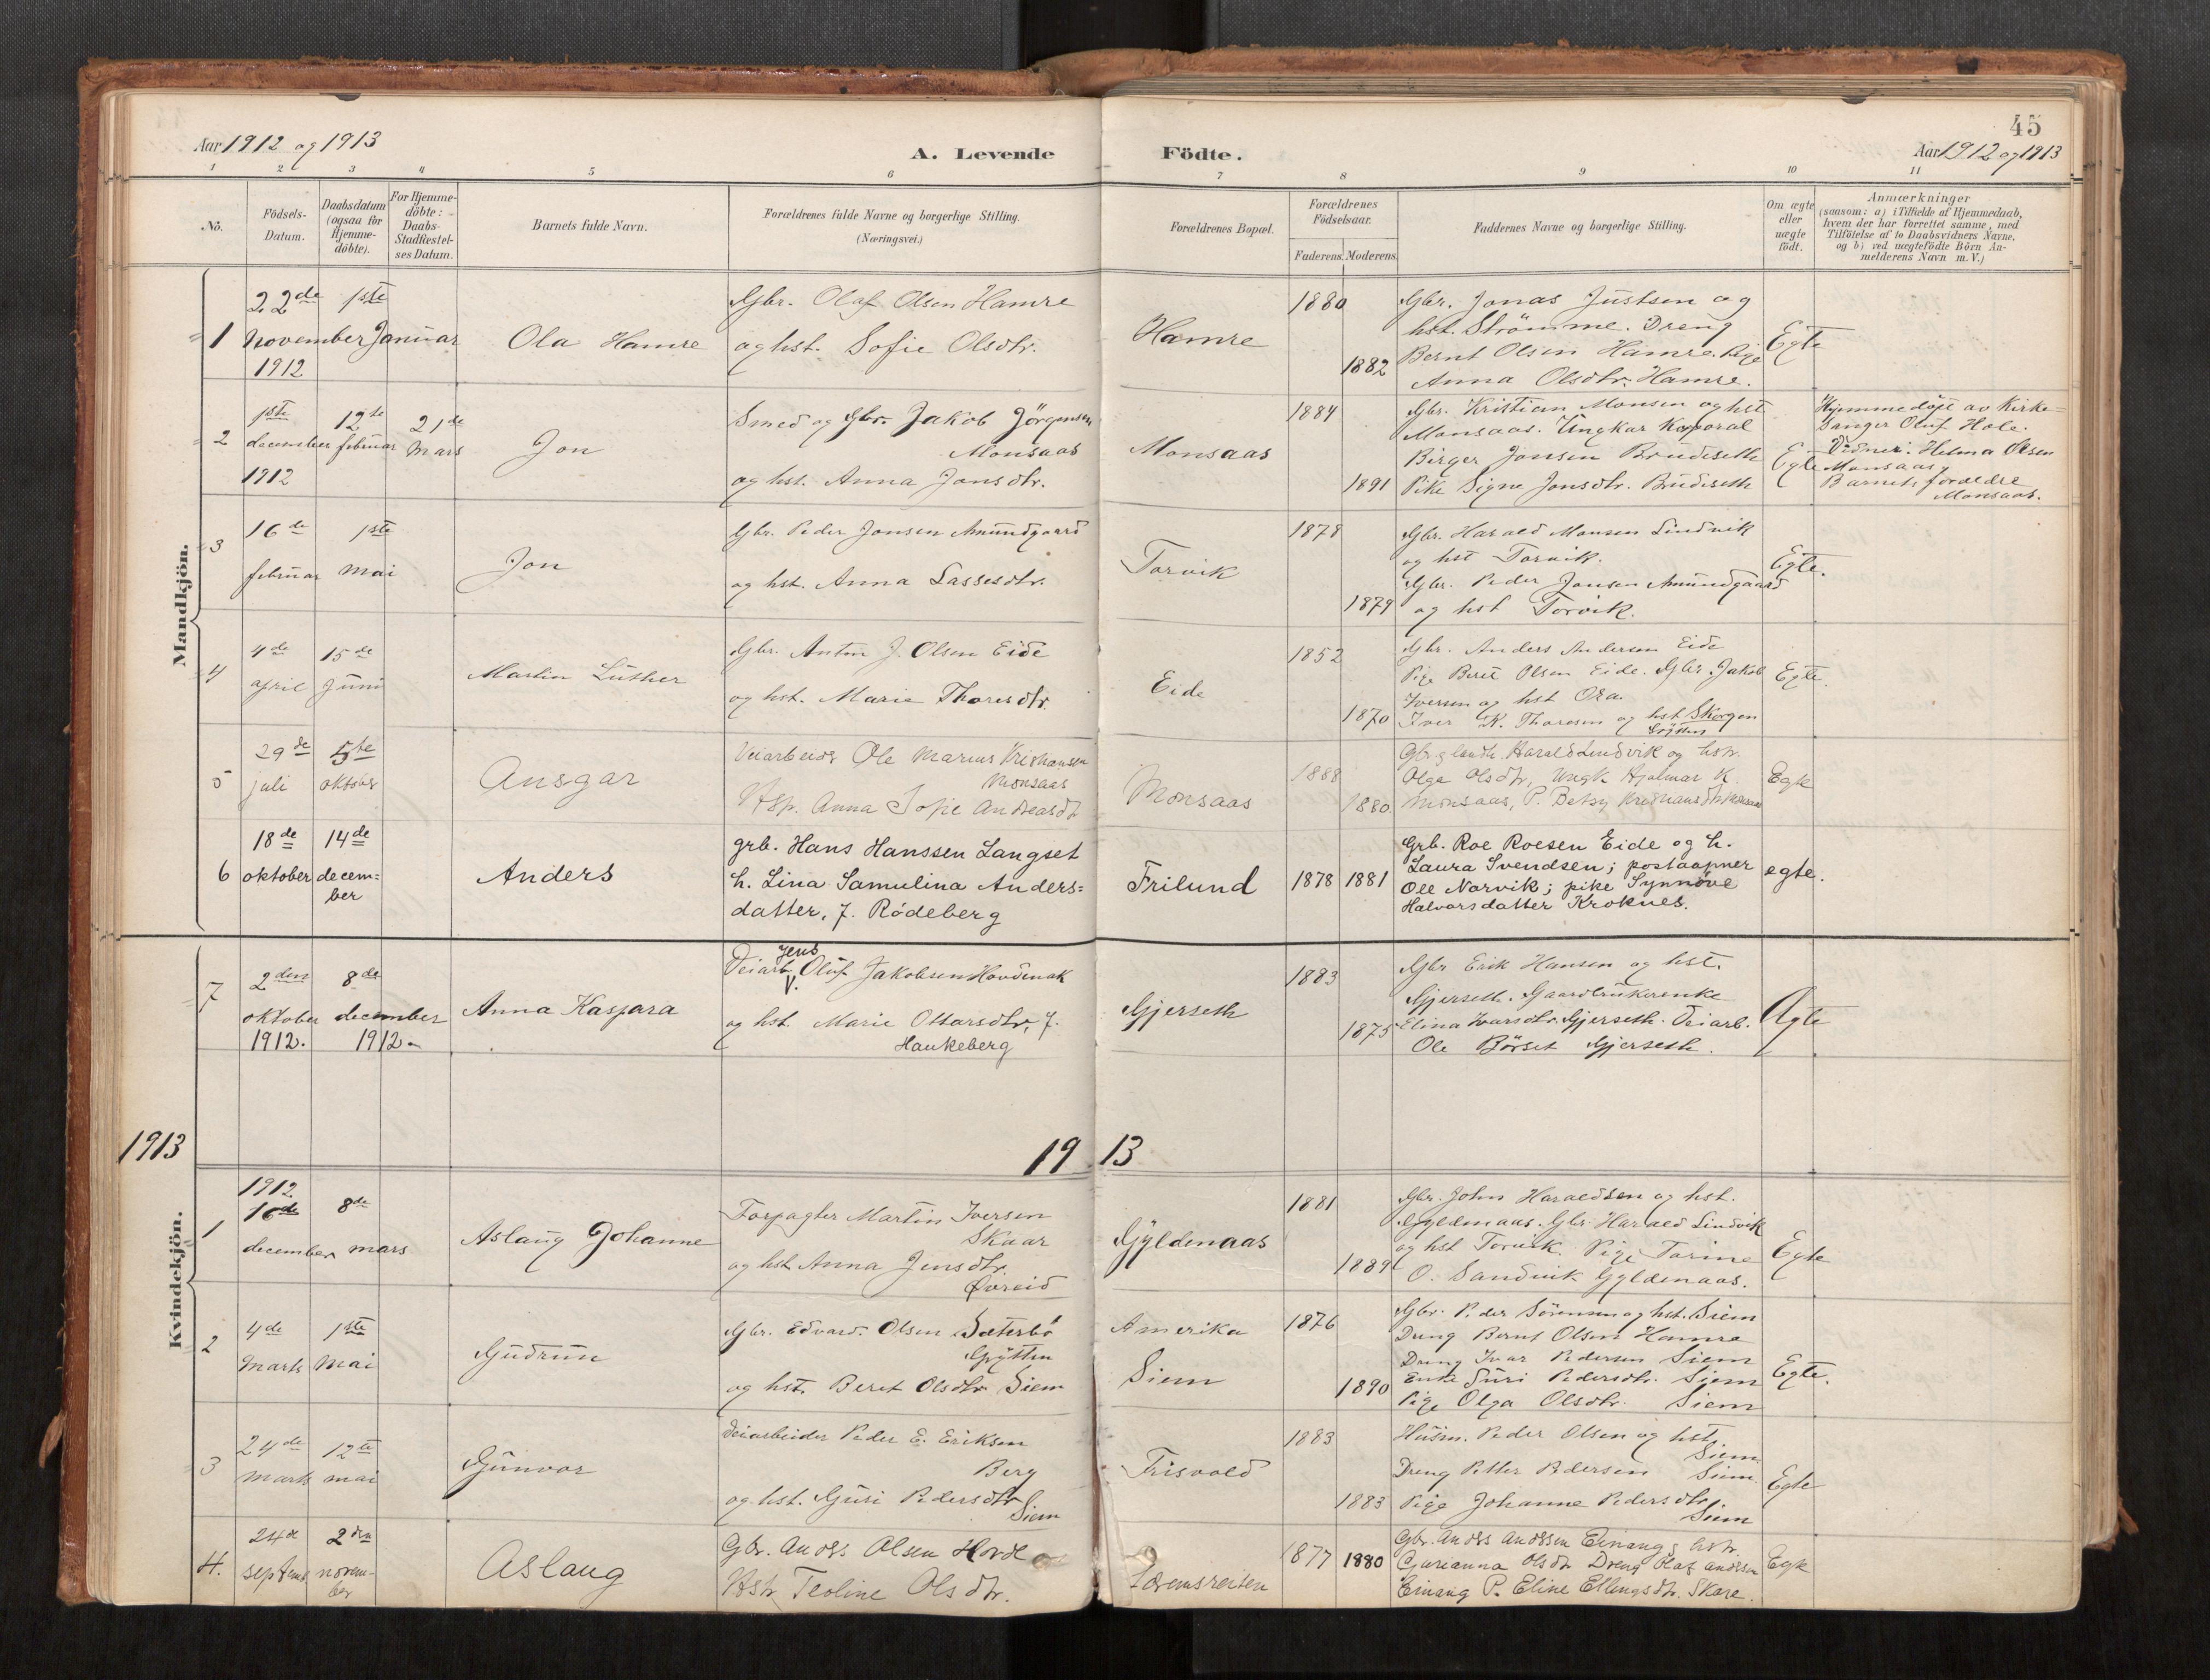 45
Aar 1912 og 1913
A. Levende Födte.
Aar 1912 og 1913
1 2 3 4 5 6 7 8 9 10 11
No.
Födsels-
Datum.
Daabsdatum
(ogsaa for
Hjemme-
döbte).
For Hjemme-
döbte:
Daabs-
Stadfæstel-
ses Datum.
Barnets fulde Navn.
Forældrenes fulde Navne og borgerlige Stilling.
(Næringsvei.)
Forældrenes Bopæl.
Forældrenes
Födselsaar.
Faderens.
Moderens.
Faddernes Navne og borgerlige Stilling.
Om ægte
eller
uægte
födt.
Anmærkninger
(saasom: a) i Tilfælde af Hjemmedaab,
hvem der har forrettet samme, med
Tilföielse af to Daabsvidners Navne,
og b) ved uægtefödte Börn An-
melderens Navn m. V.)
Mandkjön.
1
22de
november
1912
1ste
Januar
Ola Hamre
Gbr. Olaf Olsen Hamre
og hst. Sofie Olsdtr.
Hamre
1880
1882
Gbr. Jonas Justsen og
hst. Strömme. Dreng
Bernt Olsen Hamre. Pige
Anna Olsdtr. Hamre.
Egte
2
1ste
december
1912
12te
februar
21de
Mars
Jon
Smed og Gbr. Jakob Jörgensen
Monsaas
og hst. Anna Jonsdtr.
Monsaas
1884
1891
Gbr. Kristian Monsen og hst
Monsaas. Ungkar Kaporal
Birger Jonsen Brudeseth
Pike Signe Jonsdtr. Brudeseth
Egte
Hjemmedöpt av Kirke-
sanger Oluf Hole.
Vidner: Helma Olsen
Monsaas,
Barnets forældre
Monsaas.
3
16de
februar
1ste
mai
Jon
Gbr. Peder Jonsen Amundgaard
og hst. Anna Lassesdtr.
Torvik
1878
1879
Gbr. Harald Monsen Lindvik
og hst Torvik.
Gbr. Peder Jonsen Amundgaard
og hst Torvik.
Egte.
4
4de
april
15de
Juni
Martin Luther
Gbr. Anton J. Olsen Eide
og hst. Marie Thoresdtr.
Eide
1852
1870
Gbr. Anders Andersen Eide
Pige Beret Olsen Eide. Gbr. Jakob
Iversen og hst Ora.
Iver K. Thoresen og hst Skorgen
Grytten
Egte.
5
29de
juli
5te
oktober
Ansgar
Veiarbeids Ole Marius Kristiansen
Monsaas
Hsp. Anna Sofie Andreasdtr
Monsaas
1888
1880.
Gbr. g landh. Harald Lindvik og hstr.
Olga Olsdtr, Ungk Hjalmar K.
Monsaas, P. Betsy Kristiansdtr Monsaas
Egte
6
18de
oktober
14de
decem=
ber
Anders
grb. Hans Hanssen Langset
h. Lina Samulina Anders=
datter, f. Rödeberg
Frilund
1878
1881
Grb. Roe Roesen Eide og h.
Laura Svendsen; postaapner
Ole Norvik; pike Synnöve
Halvorsdatter Kroknes.
egte.
7
2den
oktober
1912.
8de
december
1912.
Anna Kaspara
Jens
Veiarb. Oluf Jakobsen Hovdenak
og hst. Marie Ottarsdtr, f.
Haukeberg
Gjerseth
1883
1875
Gbr Erik Hansen og hst.
Gjerseth. Gaardbrukerenke
Elina Ivarsdtr. Gjerseth. Veiarb.
Ole Börset Gjerseth.
Ægte
1913
19 13
Kvindekjön.
1
1912
16de
december
8de
mars
Aslaug Johanne
Forpagter Martin Iversen
Skaar
og hst Anna Jensdtr.
Øvreid
Gyldenaas
1881
1889
Gbr. John Haraldsen og hst.
Gyldenaas. Gbr Harald Lindvik
og hst Torvik. Pige Torine
O. Sandvik Gyldenaas.
Egte
2
4de
Marts
1ste
Mai
Gudrun
Gbr. Edvard Olsen Sæterbö
Grytten
og hst. Beret Olsdtr Siem
Amerika
Siem
1876
1890
Gbr. Peder Sörensen og hst. Siem
Dreng Bernt Olsen Hamre
Dreng Ivar Pedersen Siem
Enke Guri Pedersdtr. Siem
Pige Olga Olsdtr. Siem
Egte.
3
24de
Marts
12te
mai
Gunvor
Veiarbeider Peder E. Eriksen
Berg
og hst. Guri Pedersdtr
Siem
Trisvold
1883
1883
Husm. Peder Olsen og hst.
Siem.
Dreng Petter Pedersen Siem.
Pige Johanne Pedersdtr.
Siem
Egte
4.
24de
septemb.
2den
novem-
ber
Aslaug
Gbr. Anders Olsen
Hstr Teoline Olsdtr.
1877
1880
Gbr. Anders Andersen Einang; hstr.
Gurianna Olsdtr Dreng Olaf Andersen
Einang P. Eline Ellingsdtr. Skare.
Egte